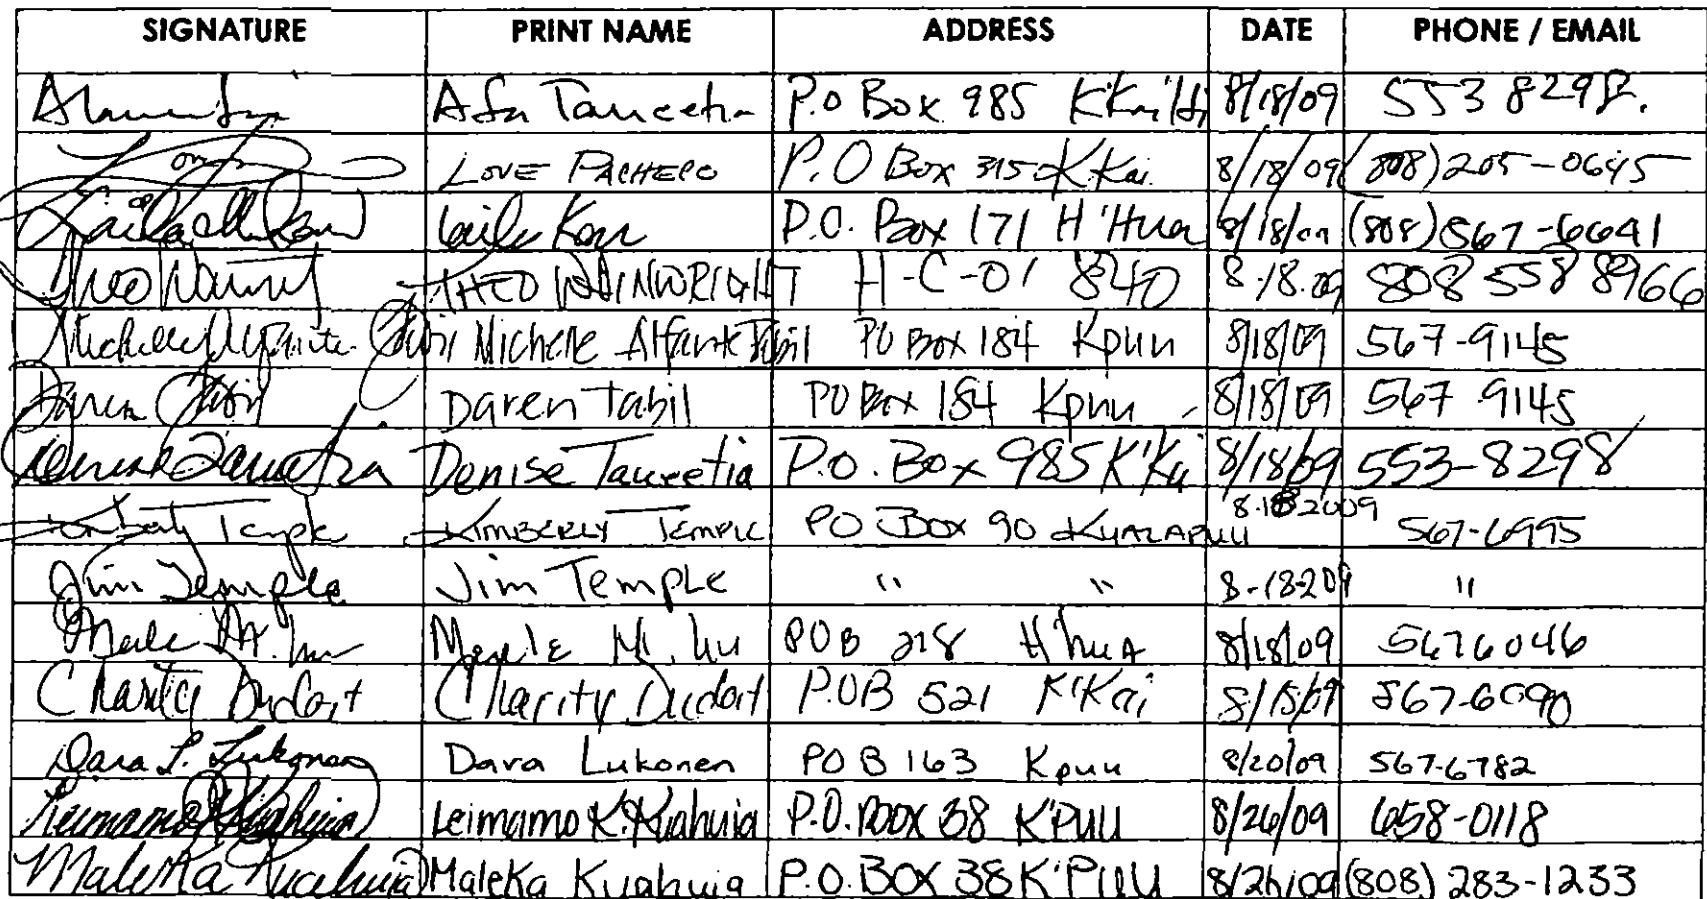 SIGNATURE PRINT NAME ADDRESS DATE PHONE / EMAIL
P.O Box 985 K'Kai 8/18/09 553 8298.
LOVE PACHECO P.O Box 315 K'Kai 8/18/09 (808) 205-0645
P.O. Box 171 H'Hua 8/18/09 (808) 567-6641
THEO WAINWRIGHT H-C-01 840 8.18.09 808 558 8966
Michelle Tabil PO Box 184 Kpuu 8/18/09 567-9145
Daren Tabil PO Box 184 Kpuu 8/18/09 567-9145
Denise Taueetia Denise Tauceetia P.O. Box 985 K'Kai 8/18/09 553-8298
Temple KIMBERLY TEMPLE PO Box 90 KUALAPUU 8.18.2009 567-6995
Jim Temple Jim Temple " " 8-18-209 "
Merle M. POB 218 H'hua 8/18/09 5676046
Charity Dudoit Charity Dudoit P.OB 521 K'Kai 8/18/09 567-6090
Dara L. Lukonen Dara Lukonen POB 163 Kpuu 8/20/09 567-6782
Leimamo K. Kuahuia P.O. Box 38 K'Puu 8/26/09 658-0118
Maleka Kuahuia Maleka Kuahuia P.O. Box 38 K'Puu 8/26/09 (808) 283-1233